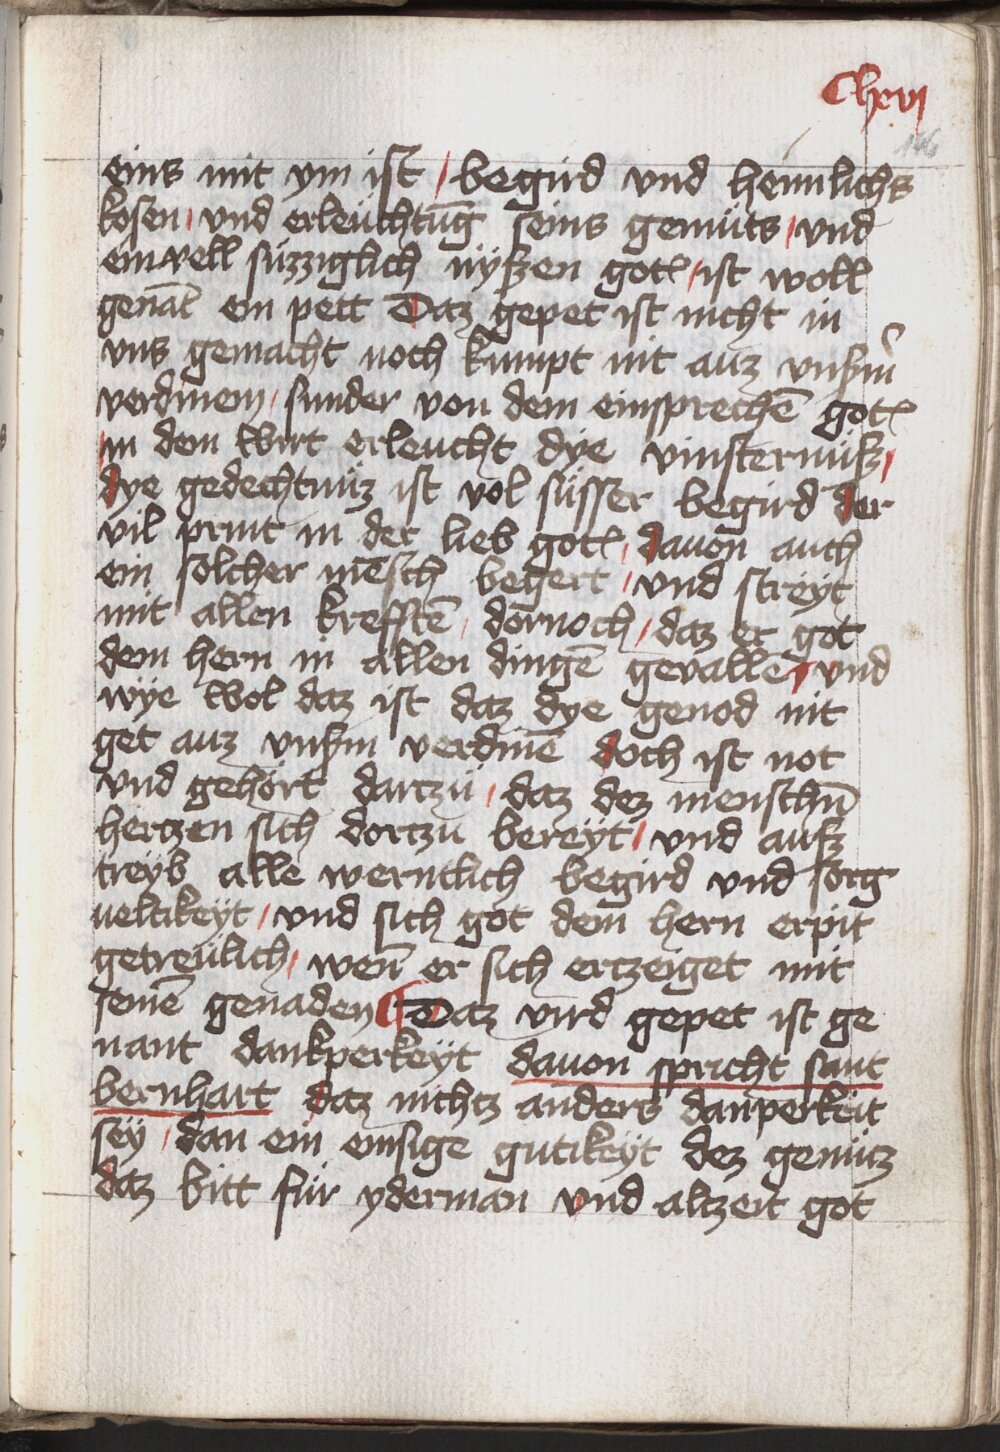 Chxvj
116
eins mit ym ist / begird vnd heimlichs
kosen / vnd erleüchtūg seins gemüts / vnd
ein well süzziglich nyßen gotz / ist woll
genāt ein pett Daz gepet ist nicht in
vns gemacht noch kumpt nit auz vnßm̄
verdinem / sunder von dem einsprechē gotz
/ in dem wirt erleucht dye vinsternüß /
dye gedechtnüz ist vol süsser begird der
vil print in der lieb gotz / dauon auch
ein solcher mēsch begert / vnd streyt
mit allen krefftē / dornoch / daz er got
dem hern in allen dingē gevallē / vnd
wye wol daz ist daz dye genod nit
get auz vnßm verdinē doch ist not
vnd gehört dartzü / daz dez menschn̄
hertzen sich dortzu bereyt / vnd auß
treyb alle werntlich begird vnd sorg
ueltikeyt / vnd sich got dem hern erpit
getreülich / wen̄ er sich ertzeiget mit
seinē genaden Daz vird gepet ist ge
nant dankperkeyt dauon spricht sant
bernhart daz nichtz anders danperkeit
sey / dan ein emsige gutikeyt dez gemütz
daz bitt für yderman vnd altzeit got